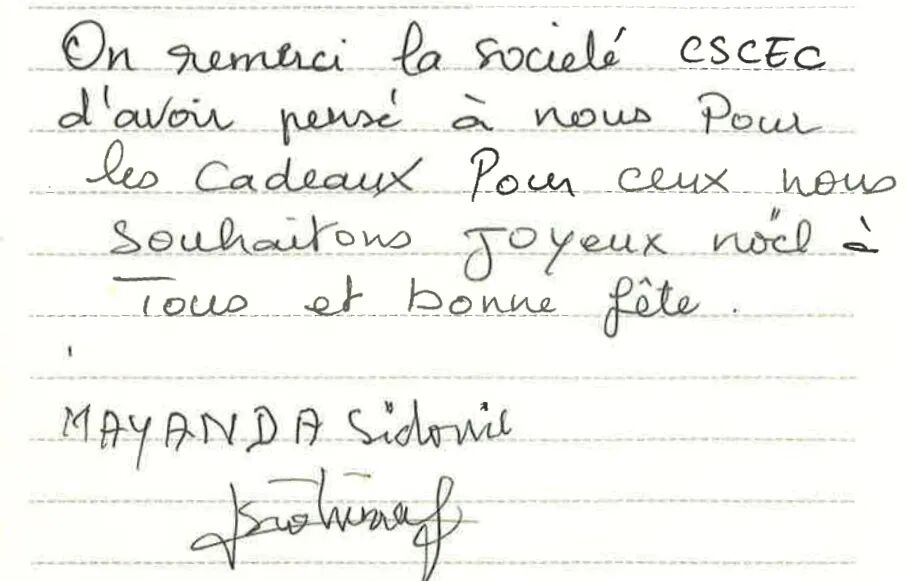 On remerci la société CSCEC
d'avoir pensé à nous Pour
les Cadeaux Pour ceux nous
Souhaitons Joyeux noël à
Tous et bonne fête.
MAYANDA Sidonie